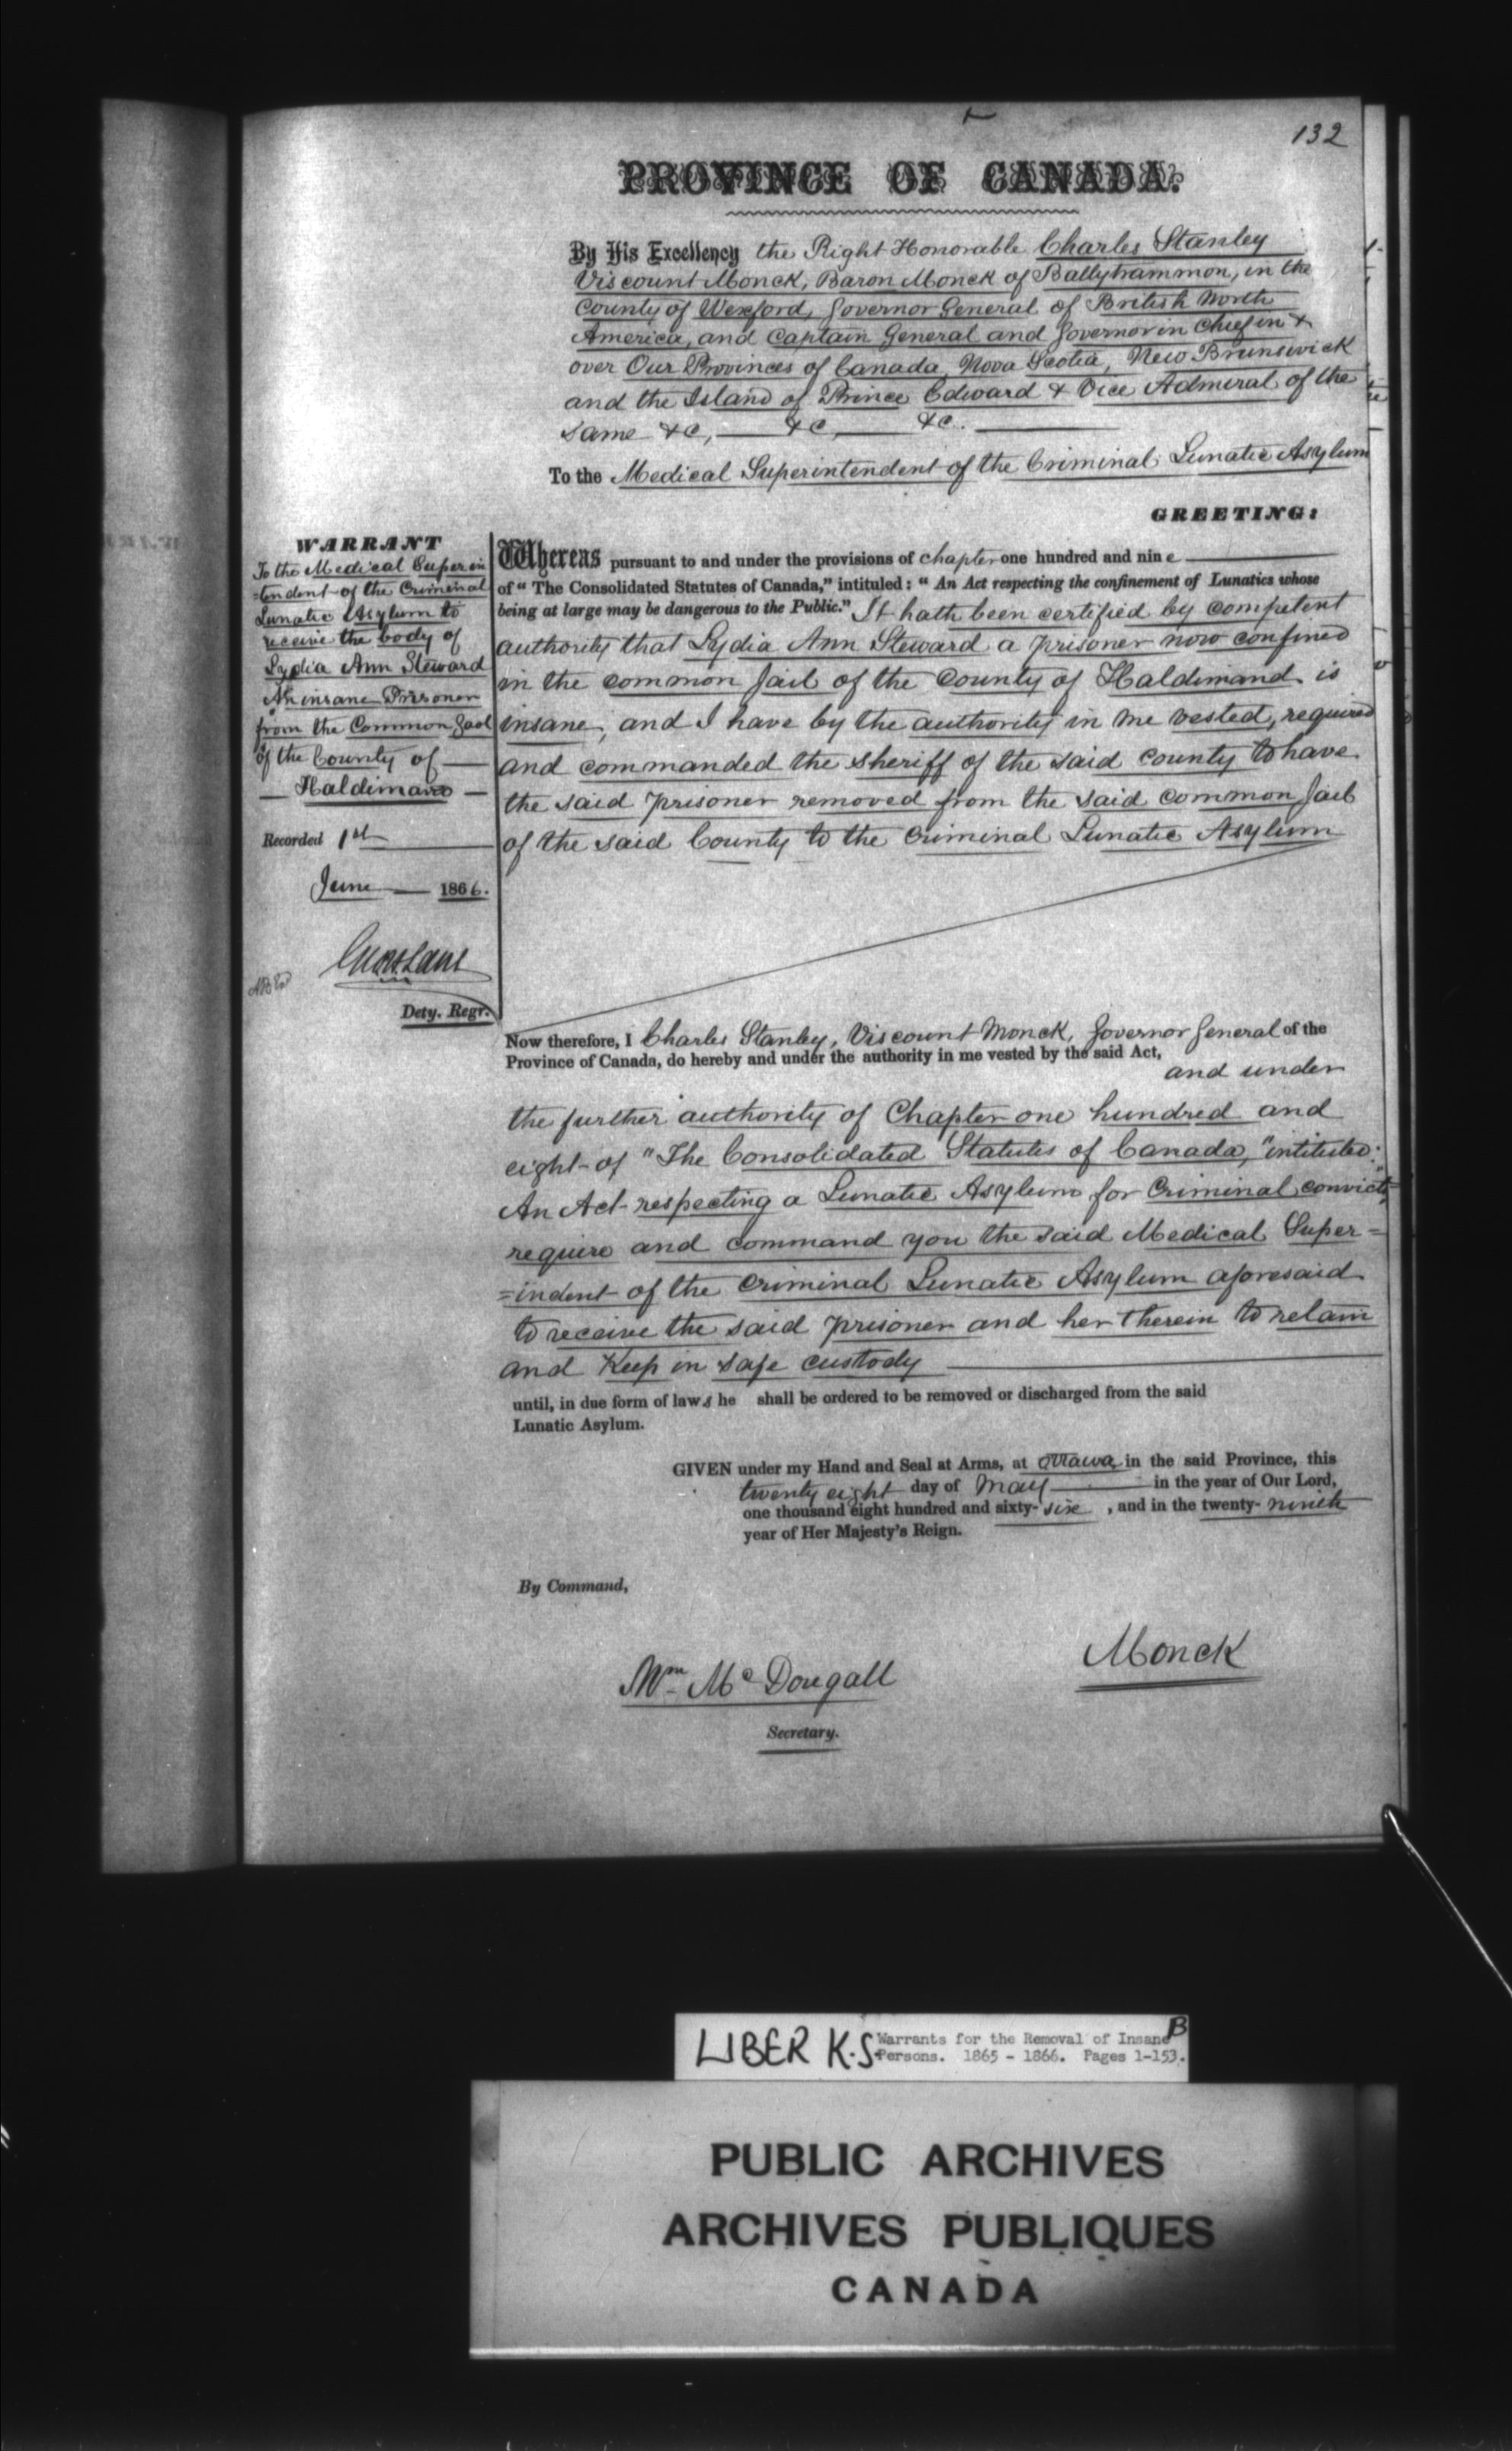 132
PROVINCE OF CANADA.
By His Excellency the Right Honorable Charles Stanley
Viscount Monck, Baron Monck of Ballytrammon, in the
County of Wexford, Governor General of British North
America, and Captain General and Governor in Chief in &
over Our Provinces of Canada, Nova Scotia, New Brunswick
and the Island of Prince Edward & Vice Admiral of the
same &c, — &c, — &c. —
To the Medical Superintendent of the Criminal Lunatic Asylum
GREETING:
WARRANT
To the Medical Superin
=tendent of the Criminal
Lunatic Asylum to
receive the body of
Lydia Ann Steward
An insane Prisoner
from the Common Gaol
of the County of —
— Haldimand —
Recorded 1st
June — 1866.
Dety. Regr.
Whereas pursuant to and under the provisions of chapter one hundred and nine
of "The Consolidated Statutes of Canada," intituled: "An Act respecting the confinement of Lunatics whose
being at large may be dangerous to the Public." It hath been certified by competent
authority that Lydia Ann Steward a prisoner now confined
in the common Jail of the County of Haldimand is
insane, and I have by the authority in me vested, required
and commanded the sheriff of the said county to have
the said prisoner removed from the said common Jail
of the said County to the Criminal Lunatic Asylum
Now therefore, I Charles Stanley, Viscount Monck, Governor General of the
Province of Canada, do hereby and under the authority in me vested by the said Act,
and under
the further authority of Chapter one hundred and
eight of "The Consolidated Statutes of Canada," intituled:
An Act respecting a Lunatic Asylum for Criminal convicts"
require and command you the said Medical Super=
=indent of the Criminal Lunatic Asylum aforesaid
to receive the said prisoner and her therein to retain
and Keep in safe custody
until, in due form of law she shall be ordered to be removed or discharged from the said
Lunatic Asylum.
GIVEN under my Hand and Seal at Arms, at Ottawa in the said Province, this
twenty eight day of May — in the year of Our Lord,
one thousand eight hundred and sixty-six, and in the twenty-ninth
year of Her Majesty's Reign.
By Command,
Monck
Wm McDougall
Secretary.
LIBER K.S. Warrants for the Removal of Insane B
Persons. 1865 - 1866. Pages 1-153.
PUBLIC ARCHIVES
ARCHIVES PUBLIQUES
CANADA